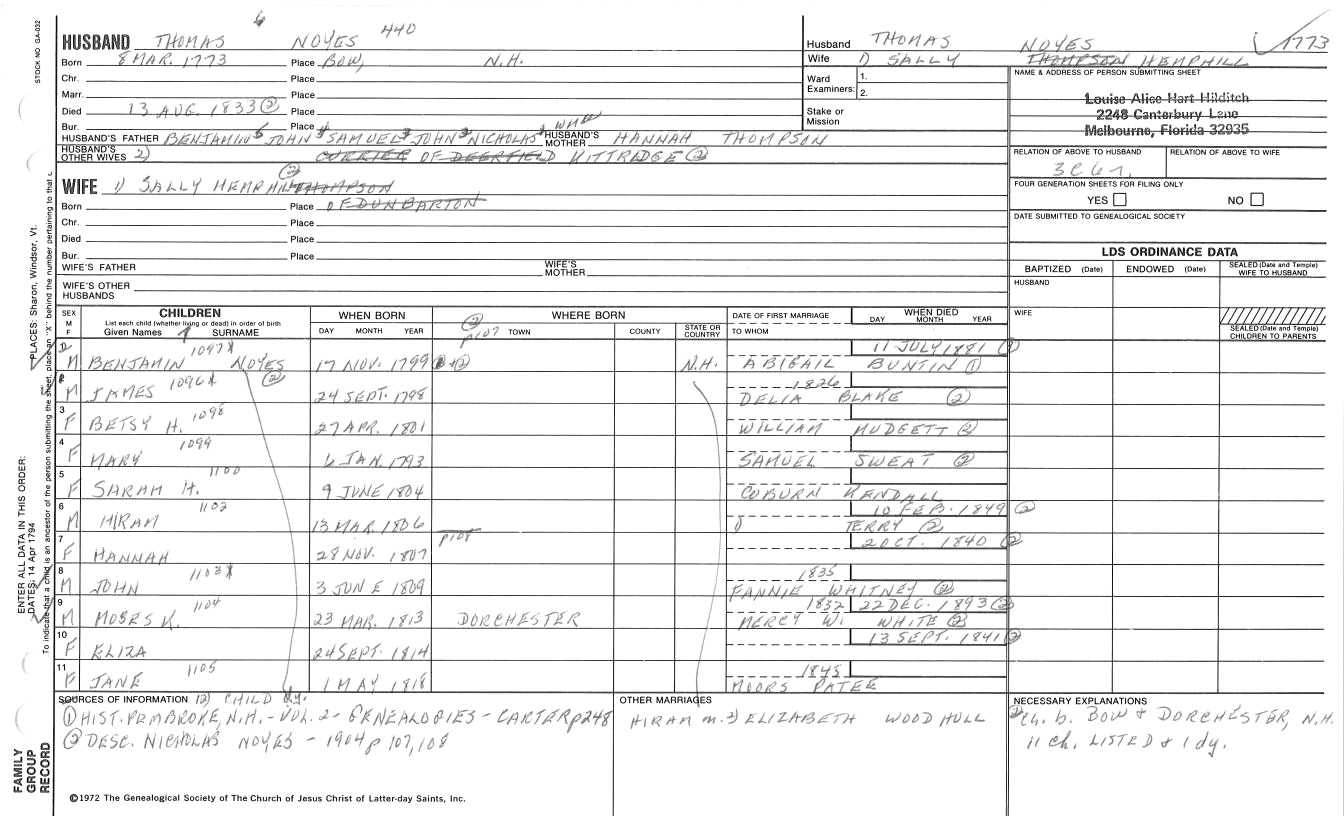 6
STOCK NO GA-032
HUSBAND THOMAS NOYES 440
Born 8 MAR. 1773 Place BOW, N.H.
Chr. Place
Marr. Place
Died 13 AUG. 1833 ② Place
Bur. Place
HUSBAND'S FATHER BENJAMIN5 JOHN4 SAMUEL3 JOHN2 NICHOLAS1 WM HUSBAND'S MOTHER HANNAH THOMPSON
HUSBAND'S OTHER WIVES 2) CURRIER OF DEERFIELD KITTRADGE ②
WIFE 1) SALLY HEMPHN ② THOMPSON
Born Place OF DUNBARTON
Chr. Place
Died Place
Bur. Place
WIFE'S FATHER WIFE'S MOTHER
WIFE'S OTHER HUSBANDS
Husband THOMAS NOYES 1773
Wife 1) SALLY THOMPSON HEMPHILL
Ward Examiners: 1. 2.
Stake or Mission
NAME & ADDRESS OF PERSON SUBMITTING SHEET
Louise Alice Hart Hilditch
2248 Canterbury Lane
Melbourne, Florida 32935
RELATION OF ABOVE TO HUSBAND RELATION OF ABOVE TO WIFE
3C6r.
FOUR GENERATION SHEETS FOR FILING ONLY
YES NO
DATE SUBMITTED TO GENEALOGICAL SOCIETY
LDS ORDINANCE DATA
BAPTIZED (Date) ENDOWED (Date) SEALED (Date and Temple) WIFE TO HUSBAND
HUSBAND
WIFE
SEALED (Date and Temple) CHILDREN TO PARENTS
SEX M F CHILDREN List each child (whether living or dead) in order of birth Given Names SURNAME WHEN BORN DAY MONTH YEAR WHERE BORN TOWN COUNTY STATE OR COUNTRY DATE OF FIRST MARRIAGE TO WHOM WHEN DIED DAY MONTH YEAR
② p107
2 M BENJAMIN 1097X NOYES 17 NOV. 1799 ①+② N.H. 11 JULY 1881 ② ABIGAIL BUNTIN ①
1 M JAMES 1096X ② 24 SEPT. 1798 1826 DELIA BLAKE ②
3 F BETSY H. 1098 27 APR. 1801 WILLIAM MUDGETT ②
4 F MARY 1099 6 JAN. 1793 SAMUEL SWEAT ②
5 F SARAH H. 1100 9 JUNE 1804 COBURN KENDALL
6 M HIRAM 1102 13 MAR. 1806 10 FEB. 1849 ② 1) TERRY ②
7 F HANNAH 28 NOV. 1807 p108 2 OCT. 1840 ②
8 M JOHN 1103X 3 JUNE 1809 1835 FANNIE WHITNEY ②
9 M MOSES K. 1104 23 MAR. 1813 DORCHESTER 1832 22 DEC. 1893 ② MERCY W. WHITE ②
10 F ELIZA 24 SEPT. 1814 13 SEPT. 1841 ②
11 F JANE 1105 1 MAY 1818 1845 MOORS PATEE
SOURCES OF INFORMATION 12) CHILD dy.
① HIST. PEMBROKE, N.H. - VOL. 2 - GENEALOGIES - CARTER p248
② DESC. NICHOLAS NOYES - 1904 p 107, 108
OTHER MARRIAGES
HIRAM m. 2) ELIZABETH WOODHULL
NECESSARY EXPLANATIONS
Ch. b. BOW & DORCHESTER, N.H.
11 ch. LISTED & 1 dy.
©1972 The Genealogical Society of The Church of Jesus Christ of Latter-day Saints, Inc.
FAMILY GROUP RECORD
ENTER ALL DATA IN THIS ORDER:
DATES: 14 Apr 1794
PLACES: Sharon, Windsor, Vt.
To indicate that a child is an ancestor of the person submitting the sheet, place an "X" behind the number pertaining to that c